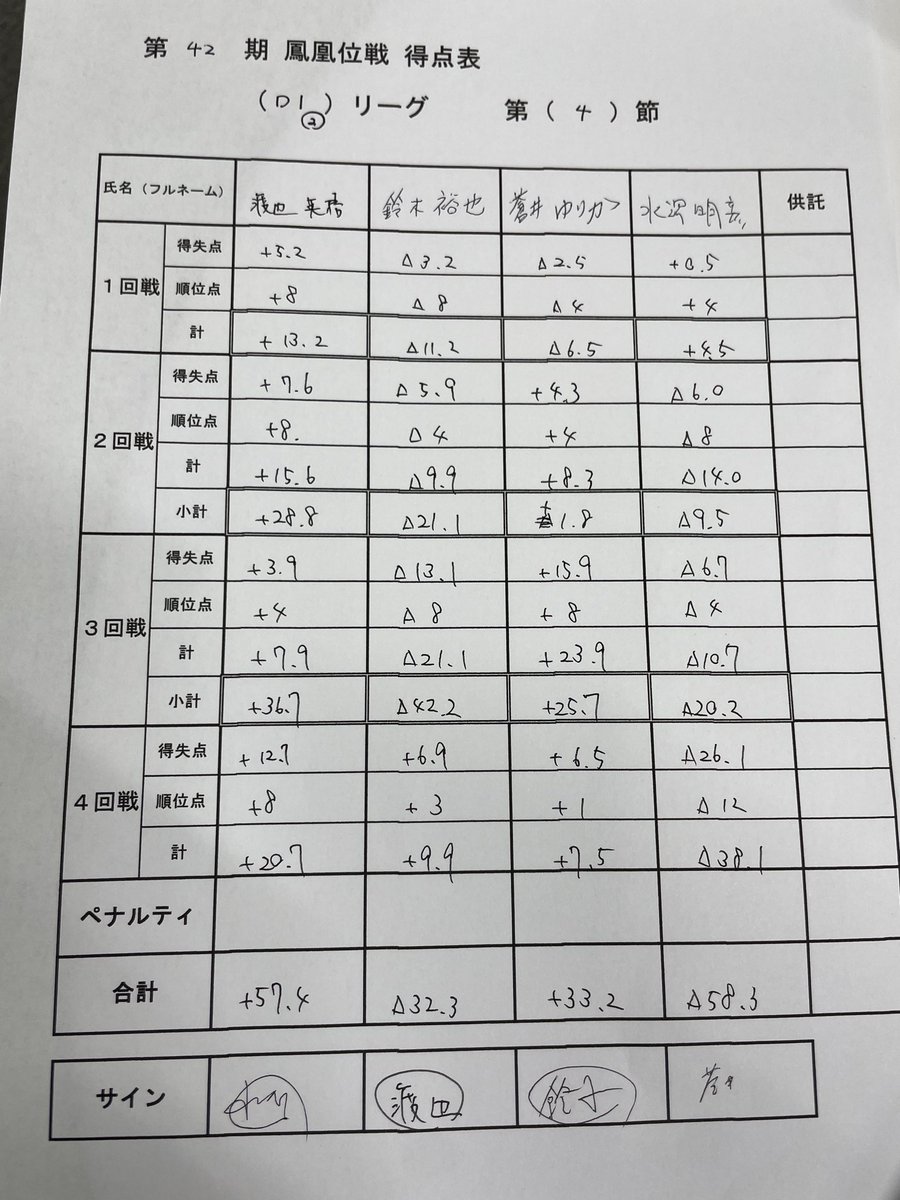 第 42 期 鳳凰位戦 得点表
(D1②) リーグ 第 ( 4 ) 節
氏名（フルネーム） 渡辺 英梧 鈴木 裕也 蒼井 ゆりか 水沼 供託
1回戦 得失点 +5.2 Δ3.2 Δ2.5 +0.5
順位点 +8 Δ8 Δ4 +4
計 +13.2 Δ11.2 Δ6.5 +4.5
2回戦 得失点 +7.6 Δ5.9 +4.3 Δ6.0
順位点 +8. Δ4 +4 Δ8
計 +15.6 Δ9.9 +8.3 Δ14.0
小計 +28.8 Δ21.1 +1.8 Δ9.5
3回戦 得失点 +3.9 Δ13.1 +15.9 Δ6.7
順位点 +4 Δ8 +8 Δ4
計 +7.9 Δ21.1 +23.9 Δ10.7
小計 +36.7 Δ42.2 +25.7 Δ20.2
4回戦 得失点 +12.7 +6.9 +6.5 Δ26.1
順位点 +8 +3 +1 Δ12
計 +20.7 +9.9 +7.5 Δ38.1
ペナルティ
合計 +57.4 Δ32.3 +33.2 Δ58.3
サイン 鈴木